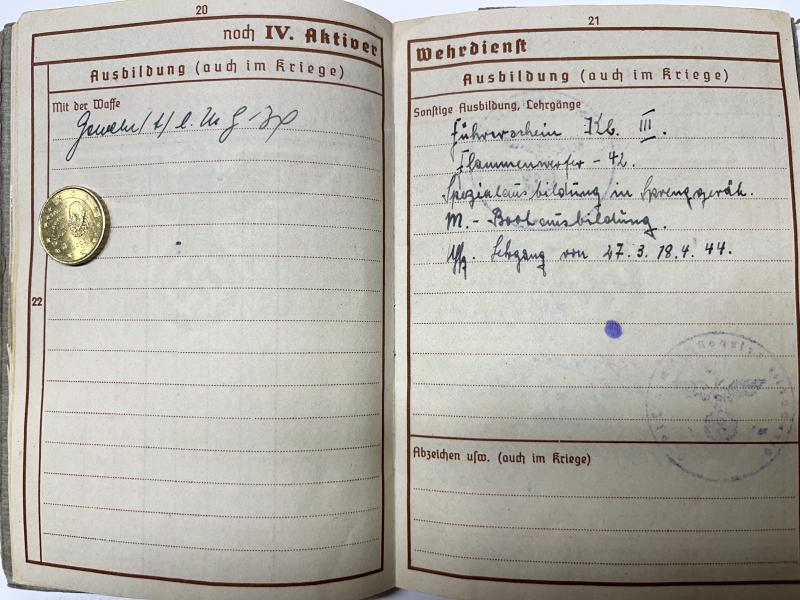 20
noch IV. Aktiver
Ausbildung (auch im Kriege)
Mit der Waffe
22
21
Wehrdienst
Ausbildung (auch im Kriege)
Sonstige Ausbildung, Lehrgänge
Führerschein Kl. III.
Flammenwerfer - 42.
Spezialausbildung in Sprenggerät.
M.- Bootausbildung.
Lehrgang von 27.3. 18.4. 44.
Abzeichen usw. (auch im Kriege)